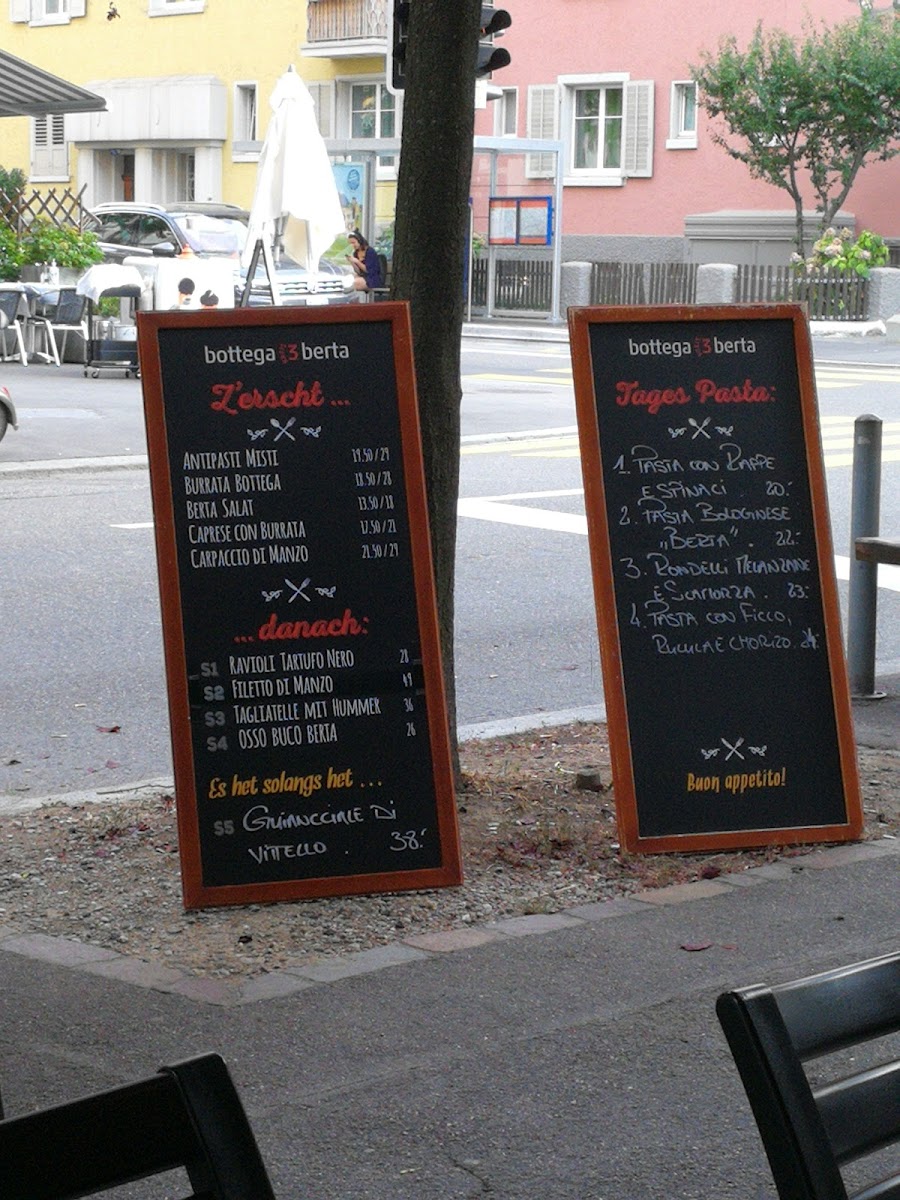 bottega 3 berta
Z'erscht ...
ANTIPASTI MISTI 19.50/29
BURRATA BOTTEGA 18.50/28
BERTA SALAT 13.50/18
CAPRESE CON BURRATA 17.50/21
CARPACCIO DI MANZO 21.50/29
... danach:
S1 RAVIOLI TARTUFO NERO 28
S2 FILETTO DI MANZO 49
S3 TAGLIATELLE MIT HUMMER 36
S4 OSSO BUCO BERTA 26
Es het solangs het ...
S5 GUANCIALE DI
VITTELLO . 38.-
bottega 3 berta
Tages Pasta:
1. PASTA CON RAPPE
E SPINACI . 20.-
2. PASTA BOLOGNESE
„BERTA" . 22.-
3. RONDELLI MELANZANE
E SCAMORZA . 23.-
4. PASTA CON FICCO,
RUCULA E CHORIZO.
Buon appetito!